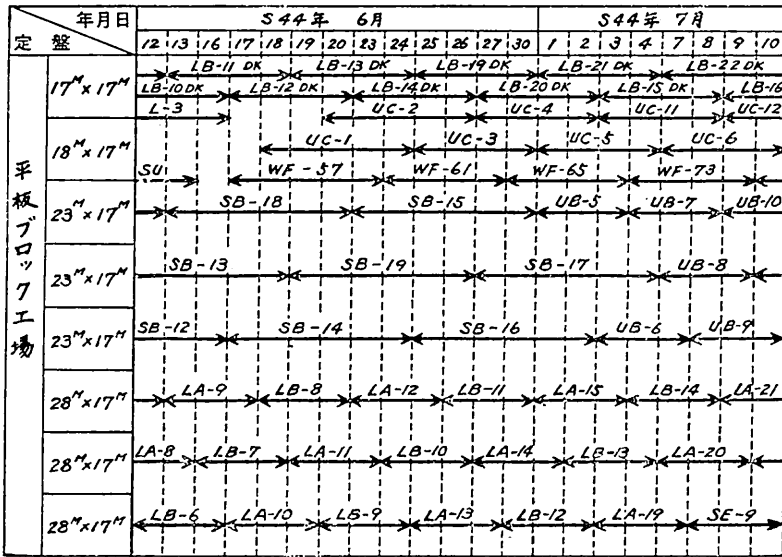 年月日
定盤
S44年 6月
S44年 7月
12 13 16 17 18 19 20 23 24 25 26 27 30 1 2 3 4 7 8 9 10
平板ブロック工場
17M×17M
LB-11 DK LB-13 DK LB-19 DK LB-21 DK LB-22 DK
LB-10 DK LB-12 DK LB-14 DK LB-20 DK LB-15 DK LB-16
L-3 UC-2 UC-4 UC-11 UC-12
18M×17M
UC-1 UC-3 UC-5 UC-6
SU WF-57 WF-61 WF-65 WF-73
23M×17M
SB-18 SB-15 UB-5 UB-7 UB-10
23M×17M
SB-13 SB-19 SB-17 UB-8
23M×17M
SB-12 SB-14 SB-16 UB-6 UB-9
28M×17M
LA-9 LB-8 LA-12 LB-11 LA-15 LB-14 LA-21
28M×17M
LA-8 LB-7 LA-11 LB-10 LA-14 LB-13 LA-20
28M×17M
LB-6 LA-10 LB-9 LA-13 LB-12 LA-19 SE-9